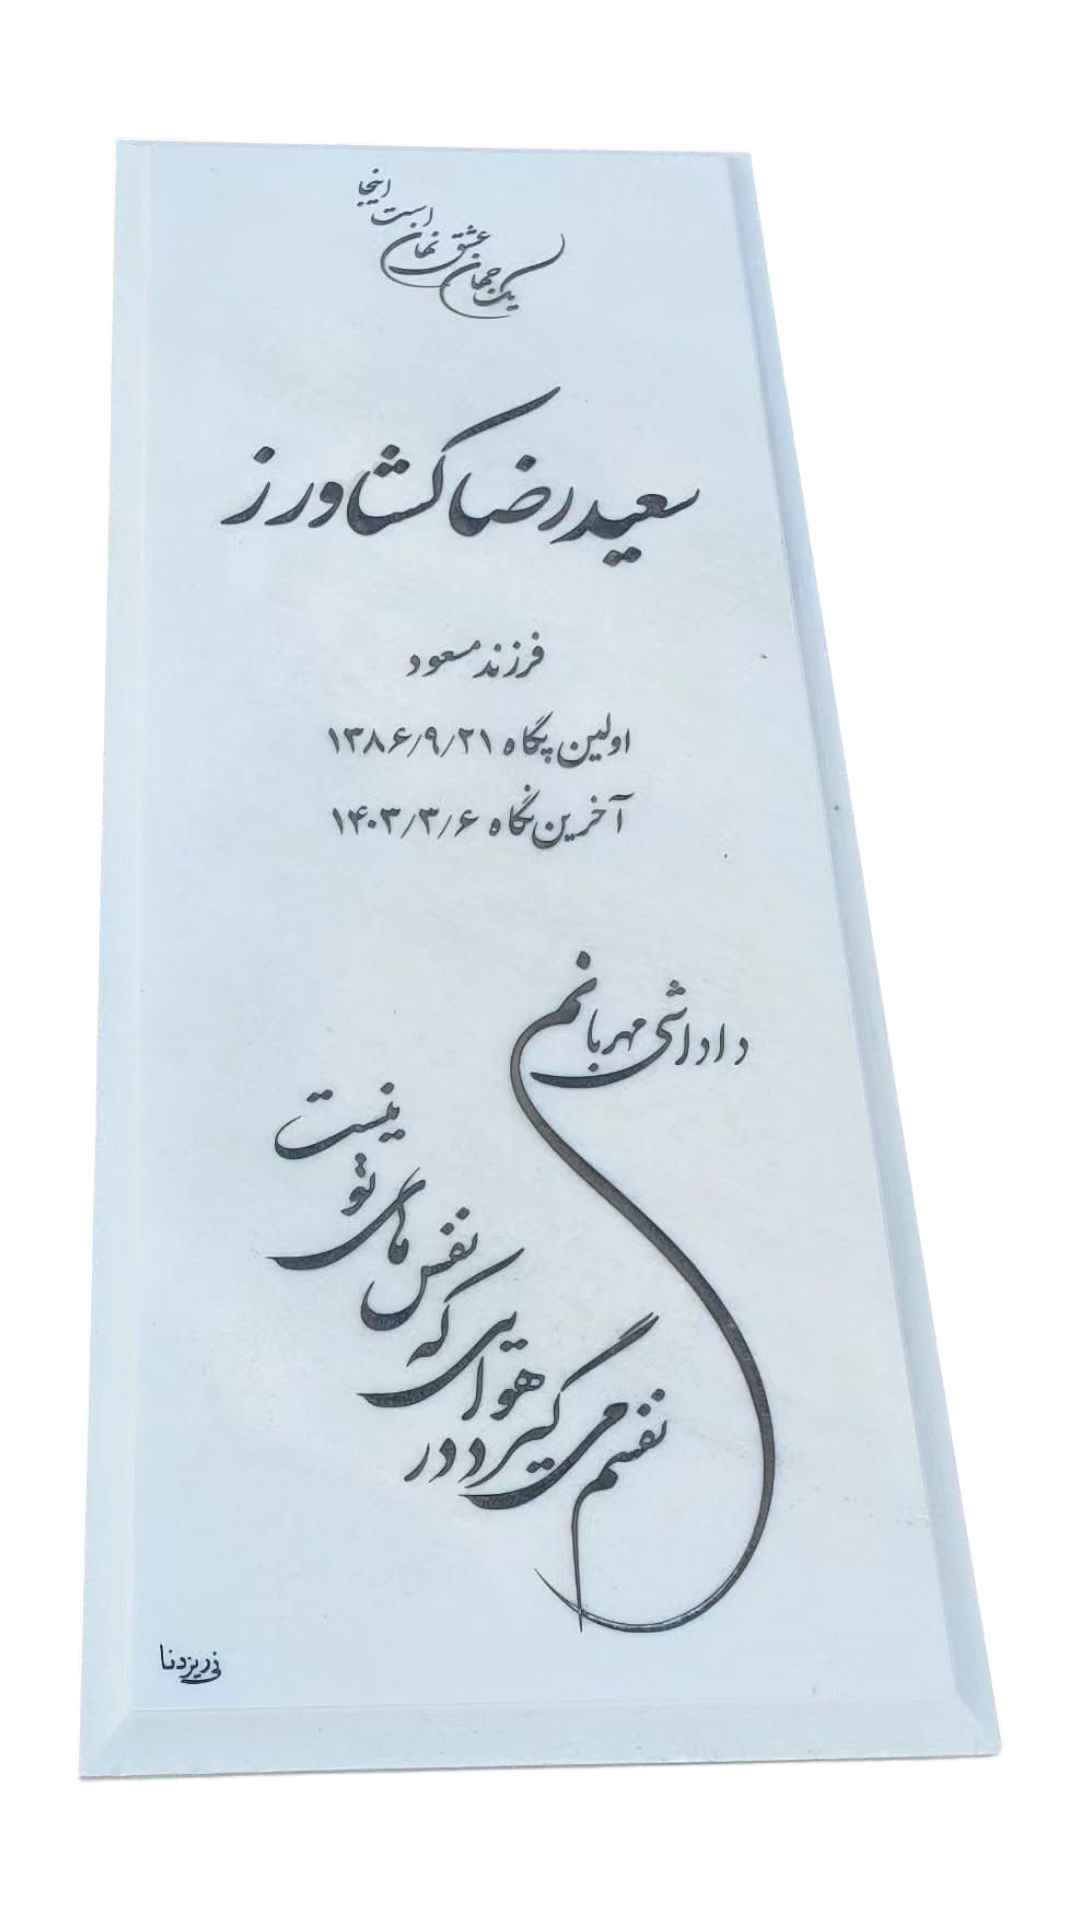 یک جهان عشق نهان است اینجا
سعیدرضا کشاورز
فرزند مسعود
اولین پگاه ۱۳۸۶/۹/۲۱
آخرین نگاه ۱۴۰۳/۳/۶
داداشی مهربانم
نفسم می گیرد در هوایی که نفس های تو نیست
نی ریزدنا